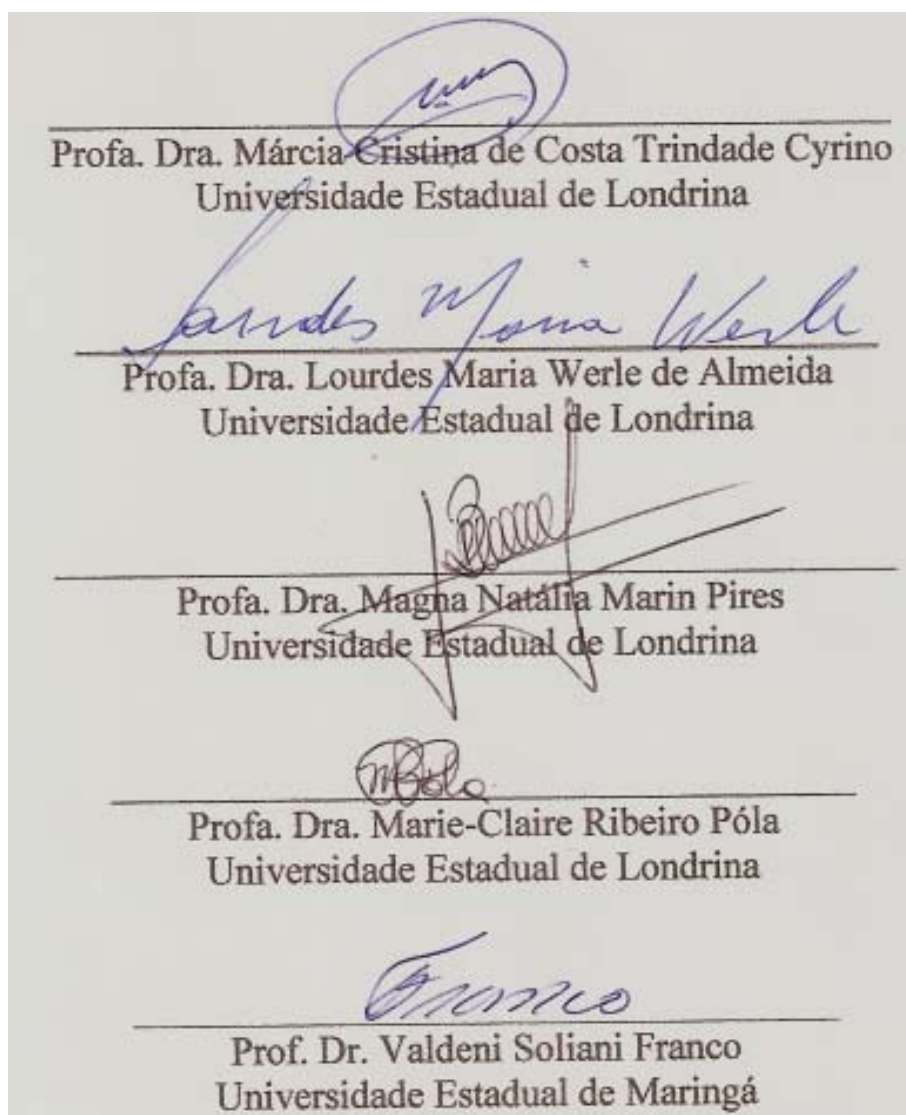 Profa. Dra. Márcia Cristina de Costa Trindade Cyrino
Universidade Estadual de Londrina
Lourdes Maria Werle
Profa. Dra. Lourdes Maria Werle de Almeida
Universidade Estadual de Londrina
Profa. Dra. Magna Natália Marin Pires
Universidade Estadual de Londrina
Profa. Dra. Marie-Claire Ribeiro Póla
Universidade Estadual de Londrina
Franco
Prof. Dr. Valdeni Soliani Franco
Universidade Estadual de Maringá